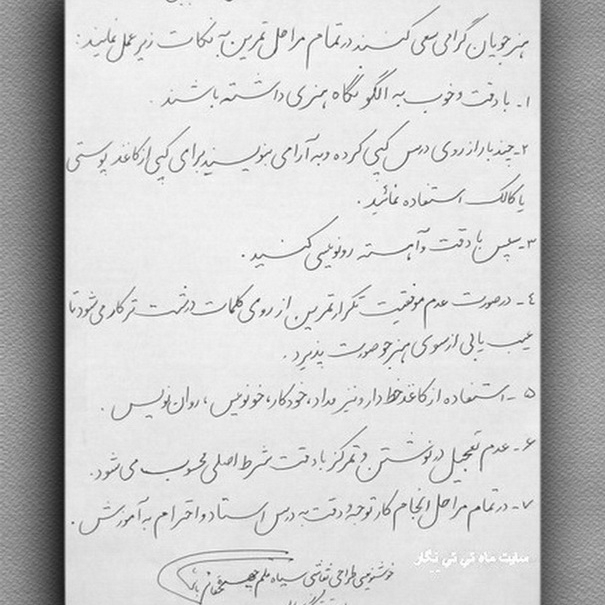 هنرجویان گرامی سعی کنند در تمام مراحل تمرین به نکات زیر عمل نمایند:
۱- با دقت و خوب به الگو نگاه هنری داشته باشند.
۲- چند بار از روی درس کپی کرده و به آرامی بنویسند برای کپی از کاغذ پوستی
یا کالک استفاده نمائید.
۳- سپس با دقت و آهسته رونویسی کنید.
۴- در صورت عدم موفقیت تکرار تمرین از روی کلمات درشت تر کار می شود تا
عیب یابی از سوی هنرجو صورت پذیرد.
۵- استفاده از کاغذ خط دار و نیز مداد، خودکار، خودنویس، روان نویس.
۶- عدم تعجیل در نوشتن و تمرکز با دقت شرط اصلی محسوب می شود.
۷- در تمام مراحل انجام کار توجه و دقت به درس استاد و احترام به آموزش.
سایت ماه تی تی نِگار
خوشنویسی طراحی نقاشی سیاه قلم